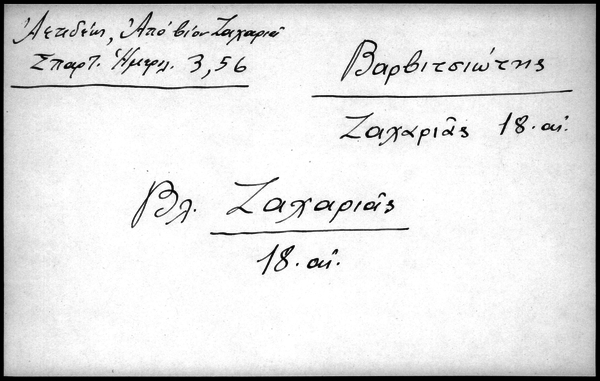 Ἀπὸ βίον Ζαχαριᾶ
Σπαρτ. Ἡμερ. 3, 56
Βαρβιτσιώτης
Ζαχαριᾶς 18. αἰ.
Βλ. Ζαχαριᾶς
18. αἰ.